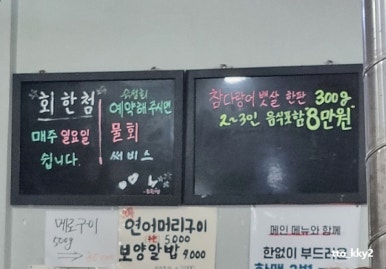 회 한 첨
매주 일요일
쉽니다.
예약해주시면
물회
써비스
참다랑어 뱃살 한판 300g
2~3인 음식포함 8만원
메로구이
500g
연어머리구이
5,000
보양알밥 4,000
메인 메뉴와 함께
한없이 부드러운
tto_kky2